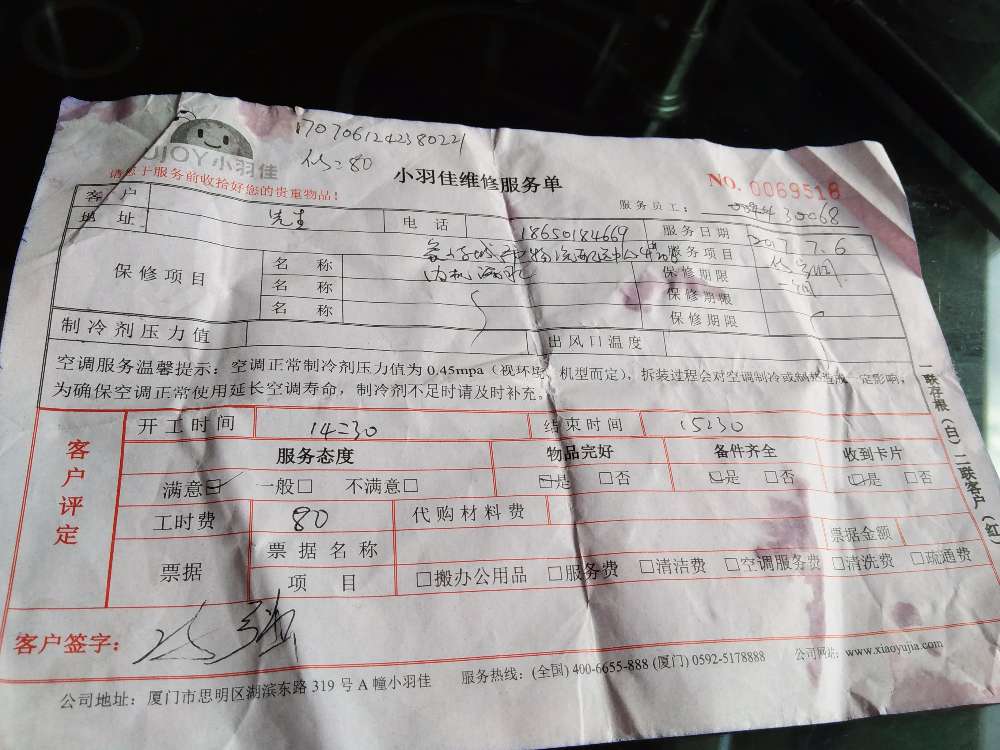 1707061242380221
80
UJOY小羽佳
小羽佳维修服务单
NO. 0069518
请您于服务前收拾好您的贵重物品！
服务员工： 30068
客户 先生 电话 18650184669 服务日期 2017.7.6
地址 服务项目
保修项目 名称 内机漏水 保修期限
名称 保修期限
名称 保修期限
制冷剂压力值 出风口温度
空调服务温馨提示：空调正常制冷剂压力值为 0.45mpa（视环境、机型而定），拆装过程会对空调制冷或制热造成一定影响，
为确保空调正常使用延长空调寿命，制冷剂不足时请及时补充。
客户评定
开工时间 14=30 结束时间 15=30
服务态度 物品完好 备件齐全 收到卡片
满意☑ 一般□ 不满意□ ☑是 □否 ☑是 □否 ☑是 □否
工时费 80 代购材料费
票据 票据名称 票据金额
项目 □搬办公用品 □服务费 □清洁费 □空调服务费 □清洗费 □疏通费
客户签字：
公司地址：厦门市思明区湖滨东路 319 号 A 幢小羽佳 服务热线：(全国) 400-6655-888 (厦门) 0592-5178888 公司网站：www.xiaoyujia.com
一联存根（白）二联客户（红）